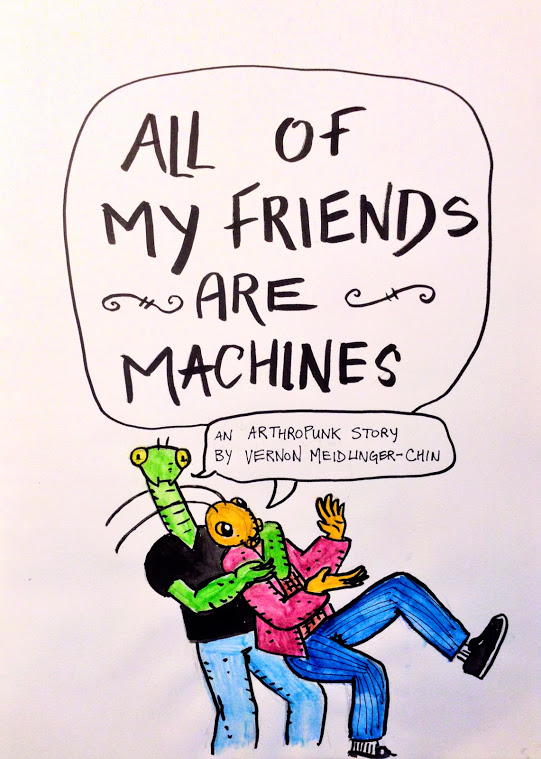 ALL OF
MY FRIENDS
ARE
MACHINES
AN ARTHROPUNK STORY
BY VERNON MEIDLINGER-CHIN